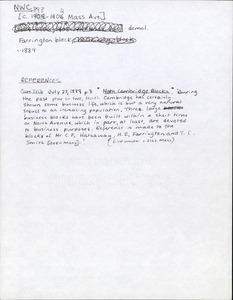 NWC
[c. 1908-1806 Mass Ave]
demol.
Farrington block
-1889
REFERENCES
July 27, 1889 p.8 "North Cambridge Blocks." During
the past year or two, North Cambridge has certainly
shown some business life, which is but a very natural
sequel to an increasing population. Three large
business blocks have been built within a short time
on North Avenue, which in part, at least, are devoted
to business purposes. Reference is made to the
blocks of Mr C.F. Hathaway, H.E. Farrington and T.C.
Smith